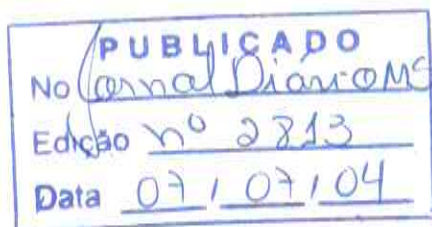 PUBLICADO
No Jornal Diário MS
Edição nº 2813
Data 07/07/04